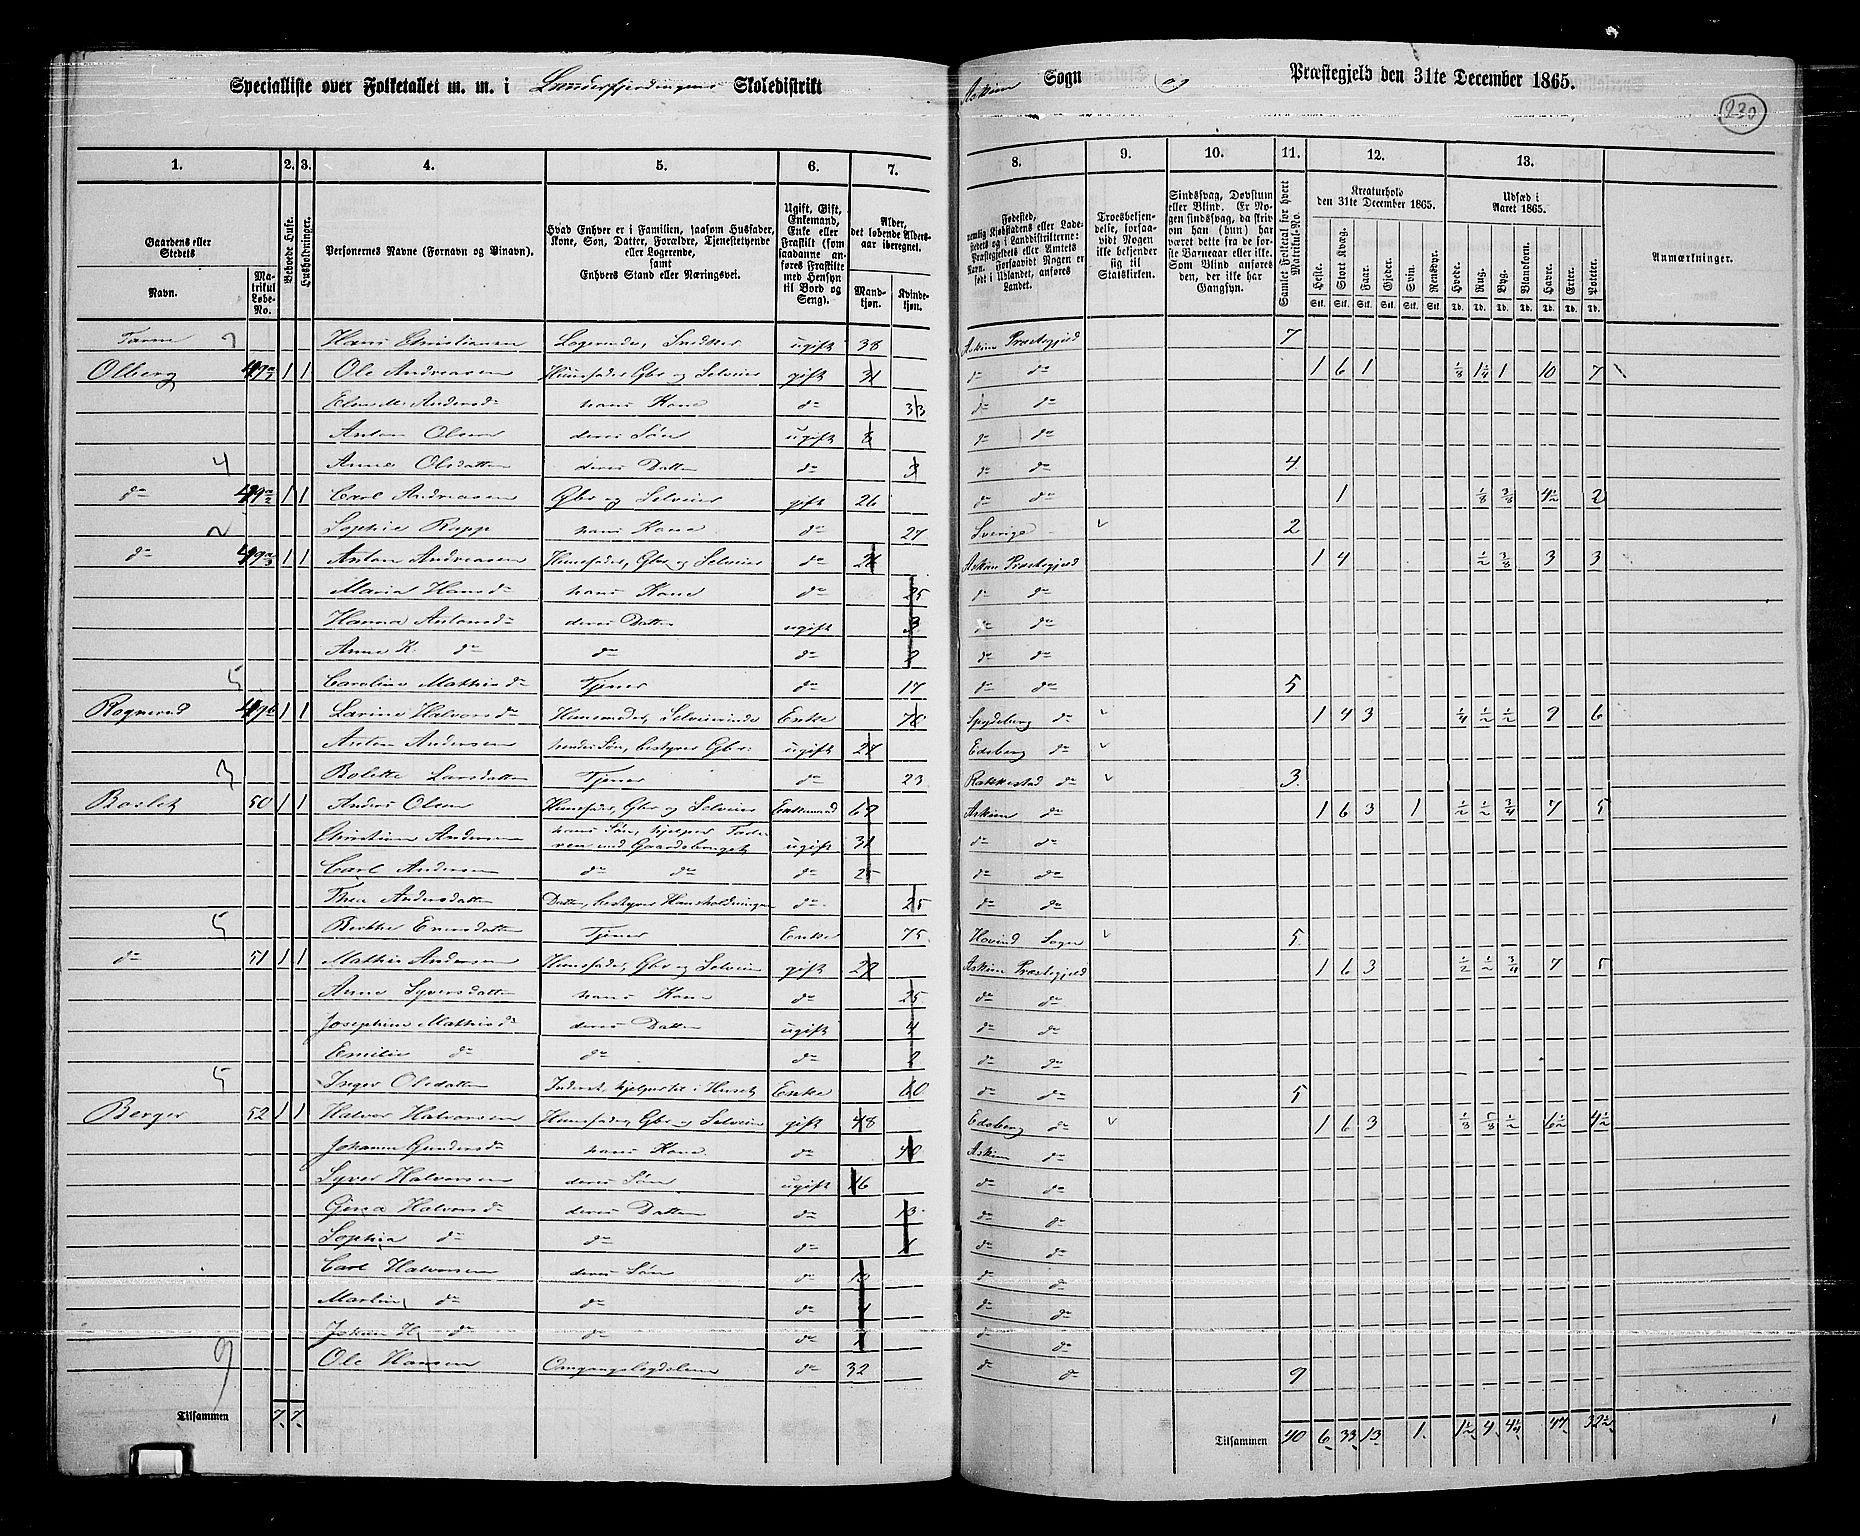 Specialliste over Folketallet m. m. i Skoledistrikt Askim Sogn og Præstegjeld den 31te December 1865.
230
1. 2. 3. 4. 5. 6. 7. 8. 9. 10. 11. 12. 13.
Gaardens eller Stedets Navn.
Matrikul Løbe-No.
Beboede Huse.
Husholdninger.
Personernes Navne (Fornavn og Tilnavn).
Hvad Enhver er i Familien, saasom Husfader, Kone, Søn, Datter, Forældre, Tjenestetyende eller Logerende, samt Enhvers Stand eller Næringsvei.
Ugift, Gift, Enkemand, Enke eller Fraskilt (som saadanne anføres Fraskilte med Hensyn til Bord og Seng).
Alder, det løbende Alders-aar iberegnet.
Mandkjøn. Kvindekjøn.
Fødested,
Troesbekjendelse, forsaavidt Nogen ikke bekjender sig til Statskirken.
Sindssvag, Døvstum eller Blind. Er Nogen sindssvag, da skrives om han (hun) har været dette fra de første Barneaar eller ikke. Som Blind anføres den, der ikke har Gangsyn.
Samlet Folketal for hvert Matrikul-No.
Kreaturhold den 31te December 1865.
Heste. Stort Kvæg. Faar. Gjeder. Svin. Rensdyr.
Udsæd i Aaret 1865.
Hvede. Rug. Byg. Blandkorn. Havre. Erter. Poteter.
Anmærkninger.
Hans Christiansen Logerende, Snedker ugift 38 Askim Præstegjeld 7
Olberg 1 1 Ole Andreasen Huusfader, Gbr og Selveier gift 31 do do 1 6 1 1/8 1 1/4 1 10 7
Andersd hans Kone do 33 do do
Anton Olsen deres Søn ugift 8 do do
4 Anne Olsdatter deres Datter do 3 do do 4
do 1 1 Carl Andreasen Gbr og Selveier gift 26 do do 1 1/8 3/8 4 1/2 2
2 Sophie Rapp hans Kone do 27 Sverige 2
do 1 1 Anton Andreasen Huusfader, Gbr og Selveier do Askim Præstegjeld 1 4 1/2 3/8 3 3
Maria Hansd hans Kone do 25 do do
Hanna Antonsd deres Datter ugift 3 do do
Anne K. do do do do do
5 Caroline Mathisd Tjener do 17 do do 5
1 1 Larine Halvorsd Huusmoder, Selveierinde Enke Spydeberg do 1 4 3 1/4 1/2 1/2 9 6
Anton Andersen hendes Søn, bestyrer Gbr. ugift Edsberg do
3 Bolette Larsdatter Tjener do 23 Rakkestad do 3
50 1 1 Anders Olsen Huusfader, Gbr og Selveier Enkemand Askim do 1 6 3 1 1/2 1/2 3/4 7 5
Christian Andersen hans Søn, hjelper Faderen med Gaardsbruget ugift 31 do do
Carl Andersen do do do 25 do do
Thea Andersdatter Datter, bestyrer Huusholdningen do 25 do do
5 Tjener Enke 75 Hovind Sogn 5
do 51 1 1 Mathis Andersen Huusfader, Gbr og Selveier gift Askim Præstegjeld 1 6 3 1/2 1/2 3/4 7 5
Anne Syversdatter hans Kone do 25 do do
Josephine Mathisd deres Datter ugift 4 do do
Emilie do do do do do
5 Inger Olsdatter Inderst, Enke 60 do do 5
Berger 52 1 1 Halvor Halvorsen Huusfader, Gbr og Selveier gift 48 Edsberg do 1 6 3 1/8 5/8 1/2 6 1/2 4 1/2
Johanne Gundersd hans Kone do 40 Askim do
Syver Halvorsen deres Søn ugift 16 do do
Halvorsd deres Datter do 13 do do
Sophia do do do do do
Carl Halvorsen deres Søn do do do
Martin do do do do do
Johan H. do do do do do
9 Ole Hansen Omgangslægdslem do 32 do do 9
Tilsammen 7 7 Tilsammen 40 6 33 13 1 1 1/2 4 4 1/4 47 32 1/2